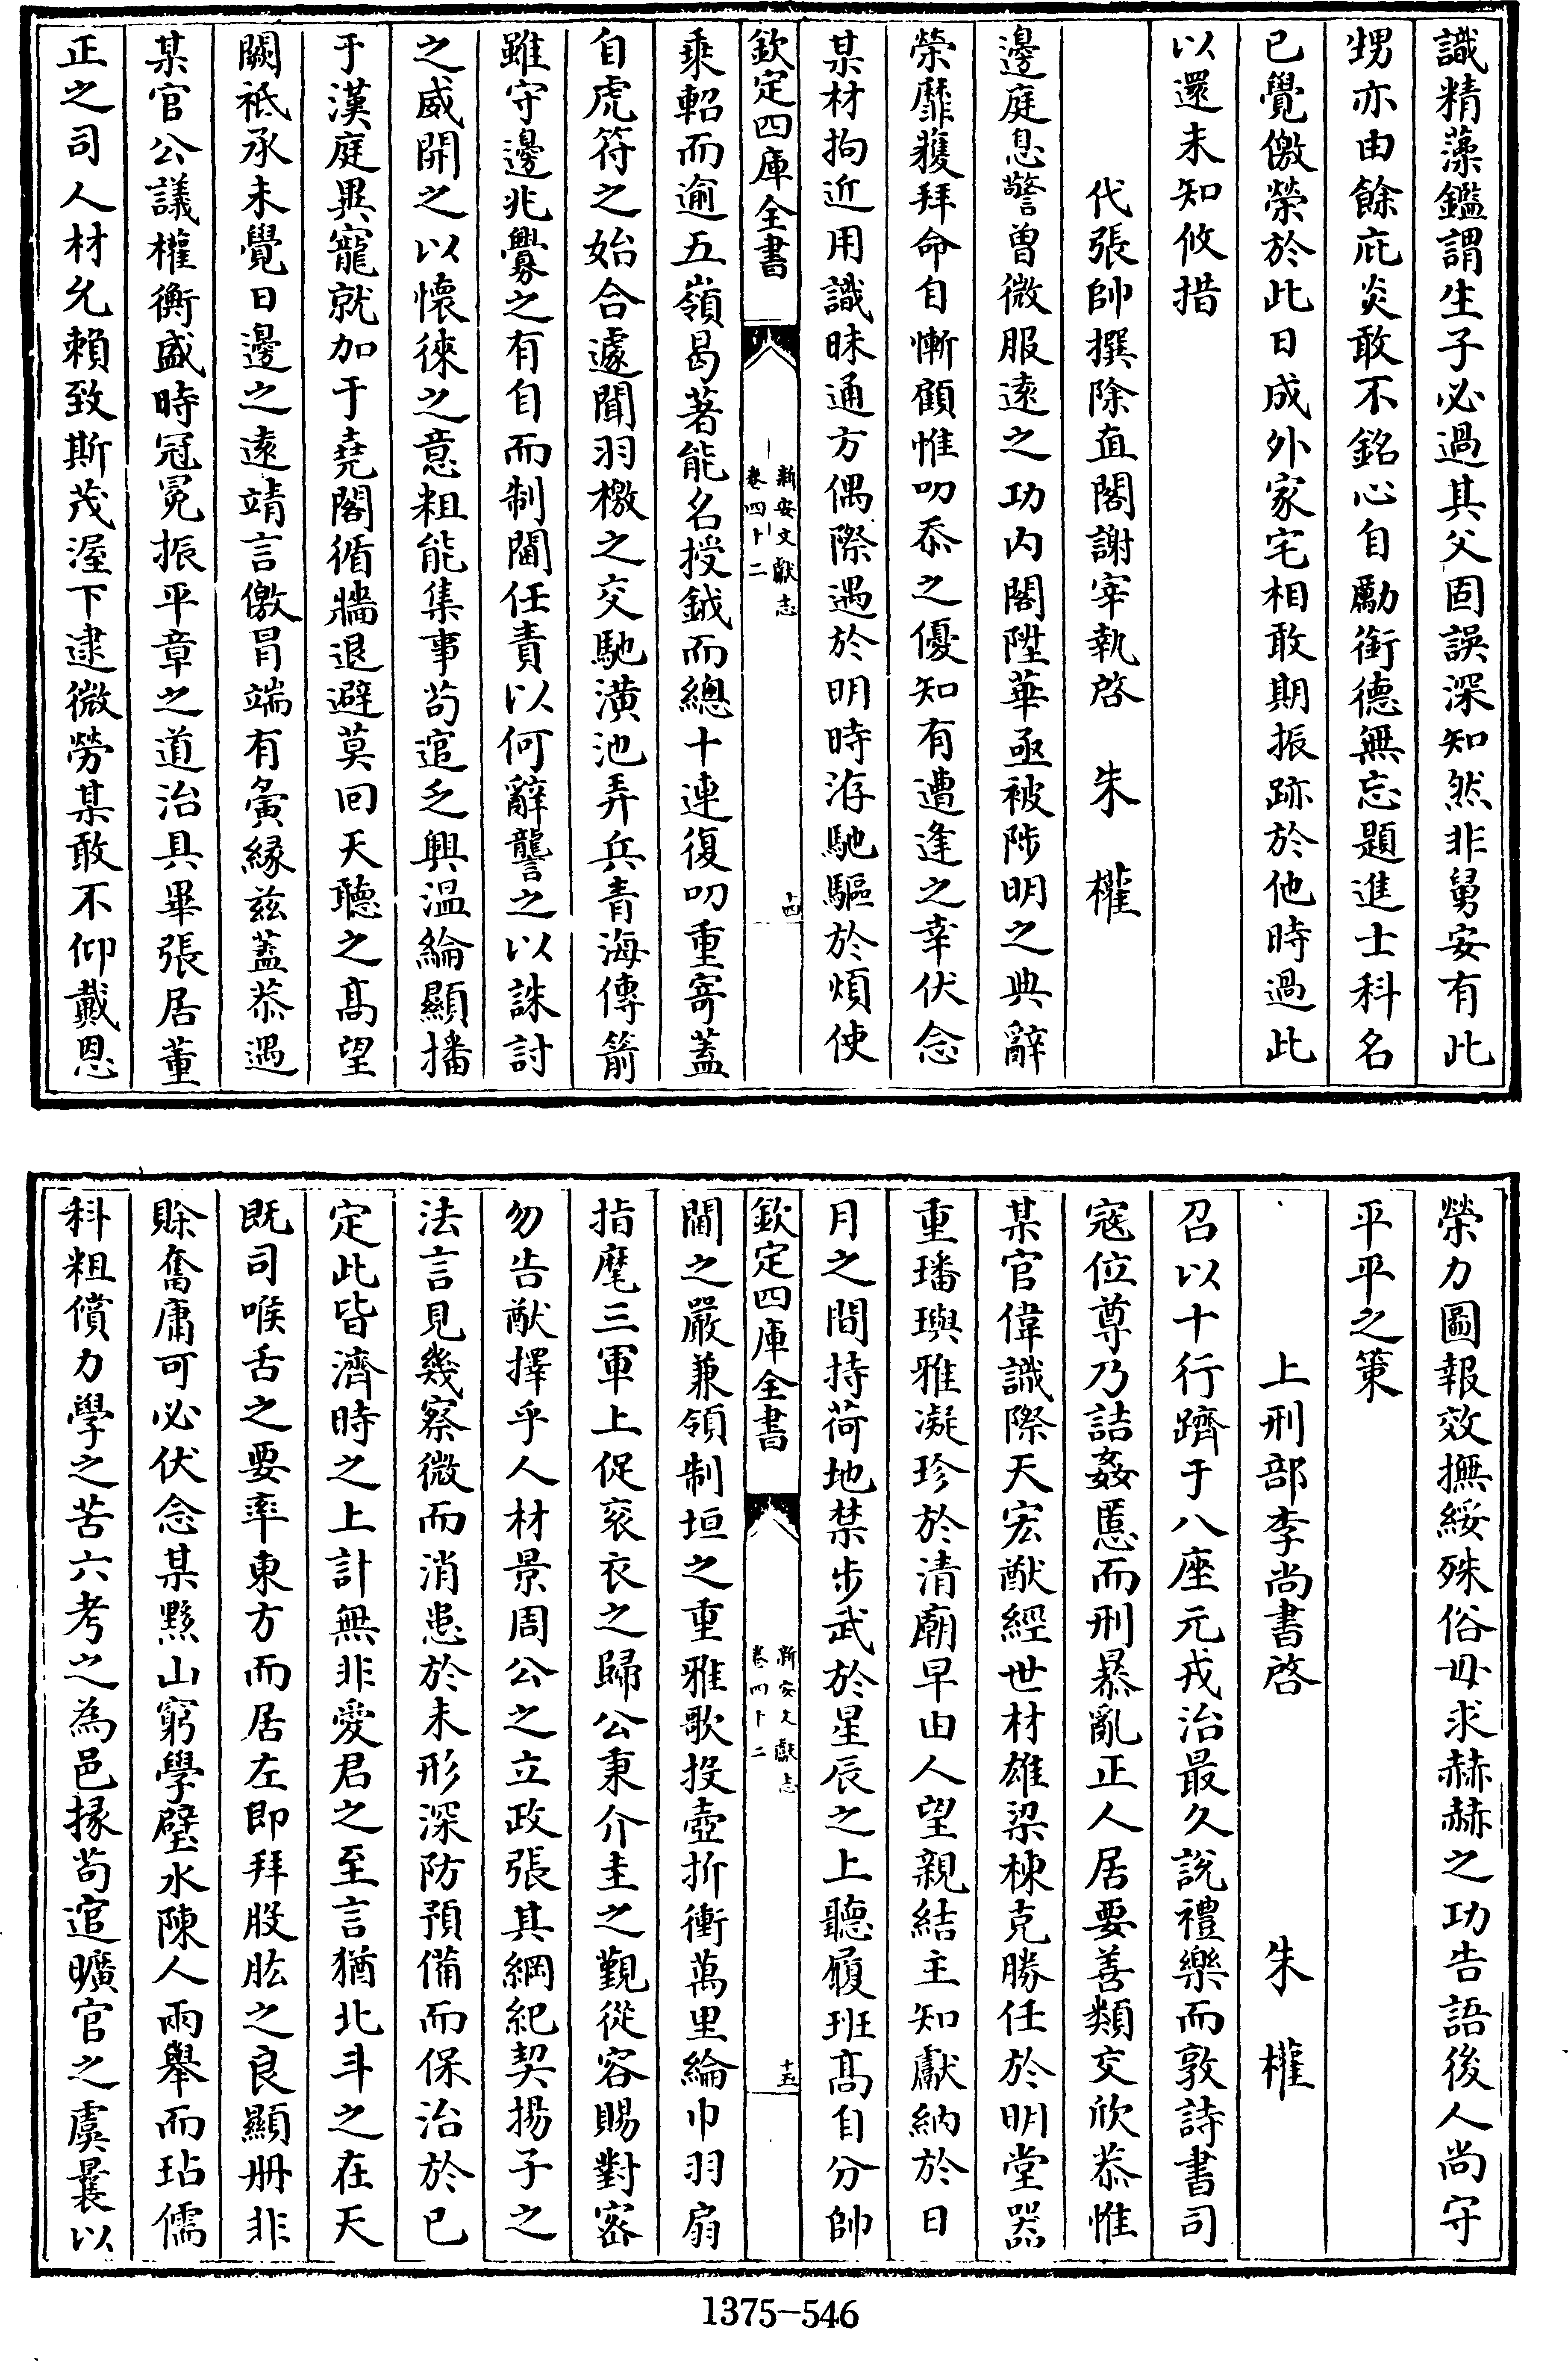 識精藻鑑謂生子必過其父固誤深知然非舅安有此
甥亦由餘庇炎敢不銘心自勵銜德無忘題進士科名
已覺儌榮於此日成外家宅相敢期振跡於他時過此
以還未知攸措
代張帥撰除直閣謝宰執啓 朱權
邊庭息警曽微服逺之功内閣陞華亟被陟明之典辭
榮靡獲拜命自慚顧惟叨忝之優知有遭逢之幸伏念
某材拘近用識昧通方偶際遇於明時洊馳驅於煩使
欽定四庫全書 新安文獻志 卷四十二 十四
乘軺而逾五嶺曷著能名授鉞而總十連復叨重寄蓋
自虎符之始合遽聞羽檄之交馳潢池弄兵青海傳箭
雖守邊兆釁之有自而制閫任責以何辭讋之以誅討
之威開之以懷徠之意粗能集事茍逭乏興温綸顯播
于漢庭異寵就加于堯閣循牆退避莫回天聽之髙望
闕祗承未覺日邊之逺靖言儌冒端有夤緣兹蓋恭遇
某官公議權衡盛時冠冕振平章之道治具畢張居董
正之司人材允賴致斯茂渥下逮微勞某敢不仰戴恩
榮力圖報效撫綏殊俗毋求赫赫之功告語後人尚守
平平之策
上刑部李尚書啓 朱權
召以十行躋于八座元戎治最久說禮樂而敦詩書司
宼位尊乃詰姦慝而刑暴亂正人居要善類交欣恭惟
某官偉識際天宏猷經世材雄梁棟克勝任於明堂器
重璠璵雅凝珍於清廟早由人望親結主知獻納於日
月之間持荷地禁步武於星辰之上聽履班髙自分帥
欽定四庫全書 新安文獻志 卷四十二 十五
閫之嚴兼領制垣之重雅歌投壺折衝萬里綸巾羽扇
指麾三軍上促衮衣之歸公秉介圭之覲從容賜對密
勿告猷擇乎人材景周公之立政張其綱紀契揚子之
法言見幾察微而消患於未形深防預備而保治於已
定此皆濟時之上計無非愛君之至言猶北斗之在天
既司喉舌之要率東方而居左即拜股肱之良顯册非
賒奮庸可必伏念某黟山窮學璧水陳人兩舉而玷儒
科粗償力學之苦六考之為邑掾茍逭曠官之虞曩以
1375-546